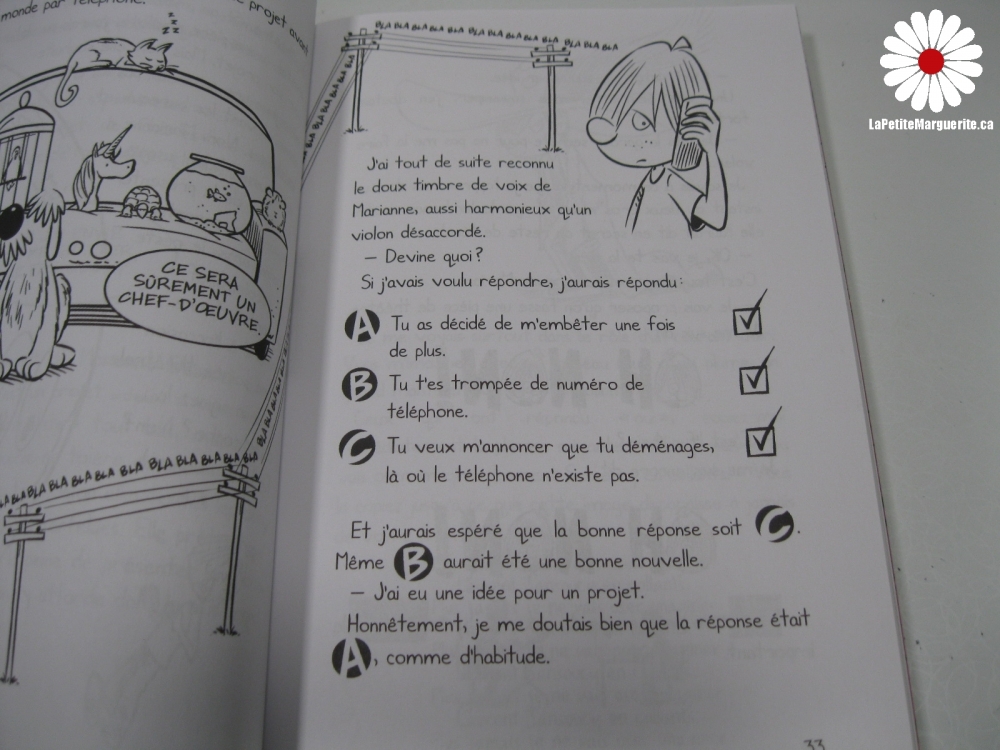 monde par téléphone.
projet avant
z z z
CE SERA
SÛREMENT UN
CHEF-D'ŒUVRE.
BLA BLA BLA BLA BLA BLA BLA BLA BLA BLA
BLA BLA BLA BLA BLA BLA BLA BLA BLA BLA BLA
LaPetiteMarguerite.ca
J'ai tout de suite reconnu
le doux timbre de voix de
Marianne, aussi harmonieux qu'un
violon désaccordé.
– Devine quoi?
Si j'avais voulu répondre, j'aurais répondu:
A Tu as décidé de m'embêter une fois
de plus.
B Tu t'es trompée de numéro de
téléphone.
C Tu veux m'annoncer que tu déménages,
là où le téléphone n'existe pas.
Et j'aurais espéré que la bonne réponse soit C.
Même B aurait été une bonne nouvelle.
– J'ai eu une idée pour un projet.
Honnêtement, je me doutais bien que la réponse était
A, comme d'habitude.
33